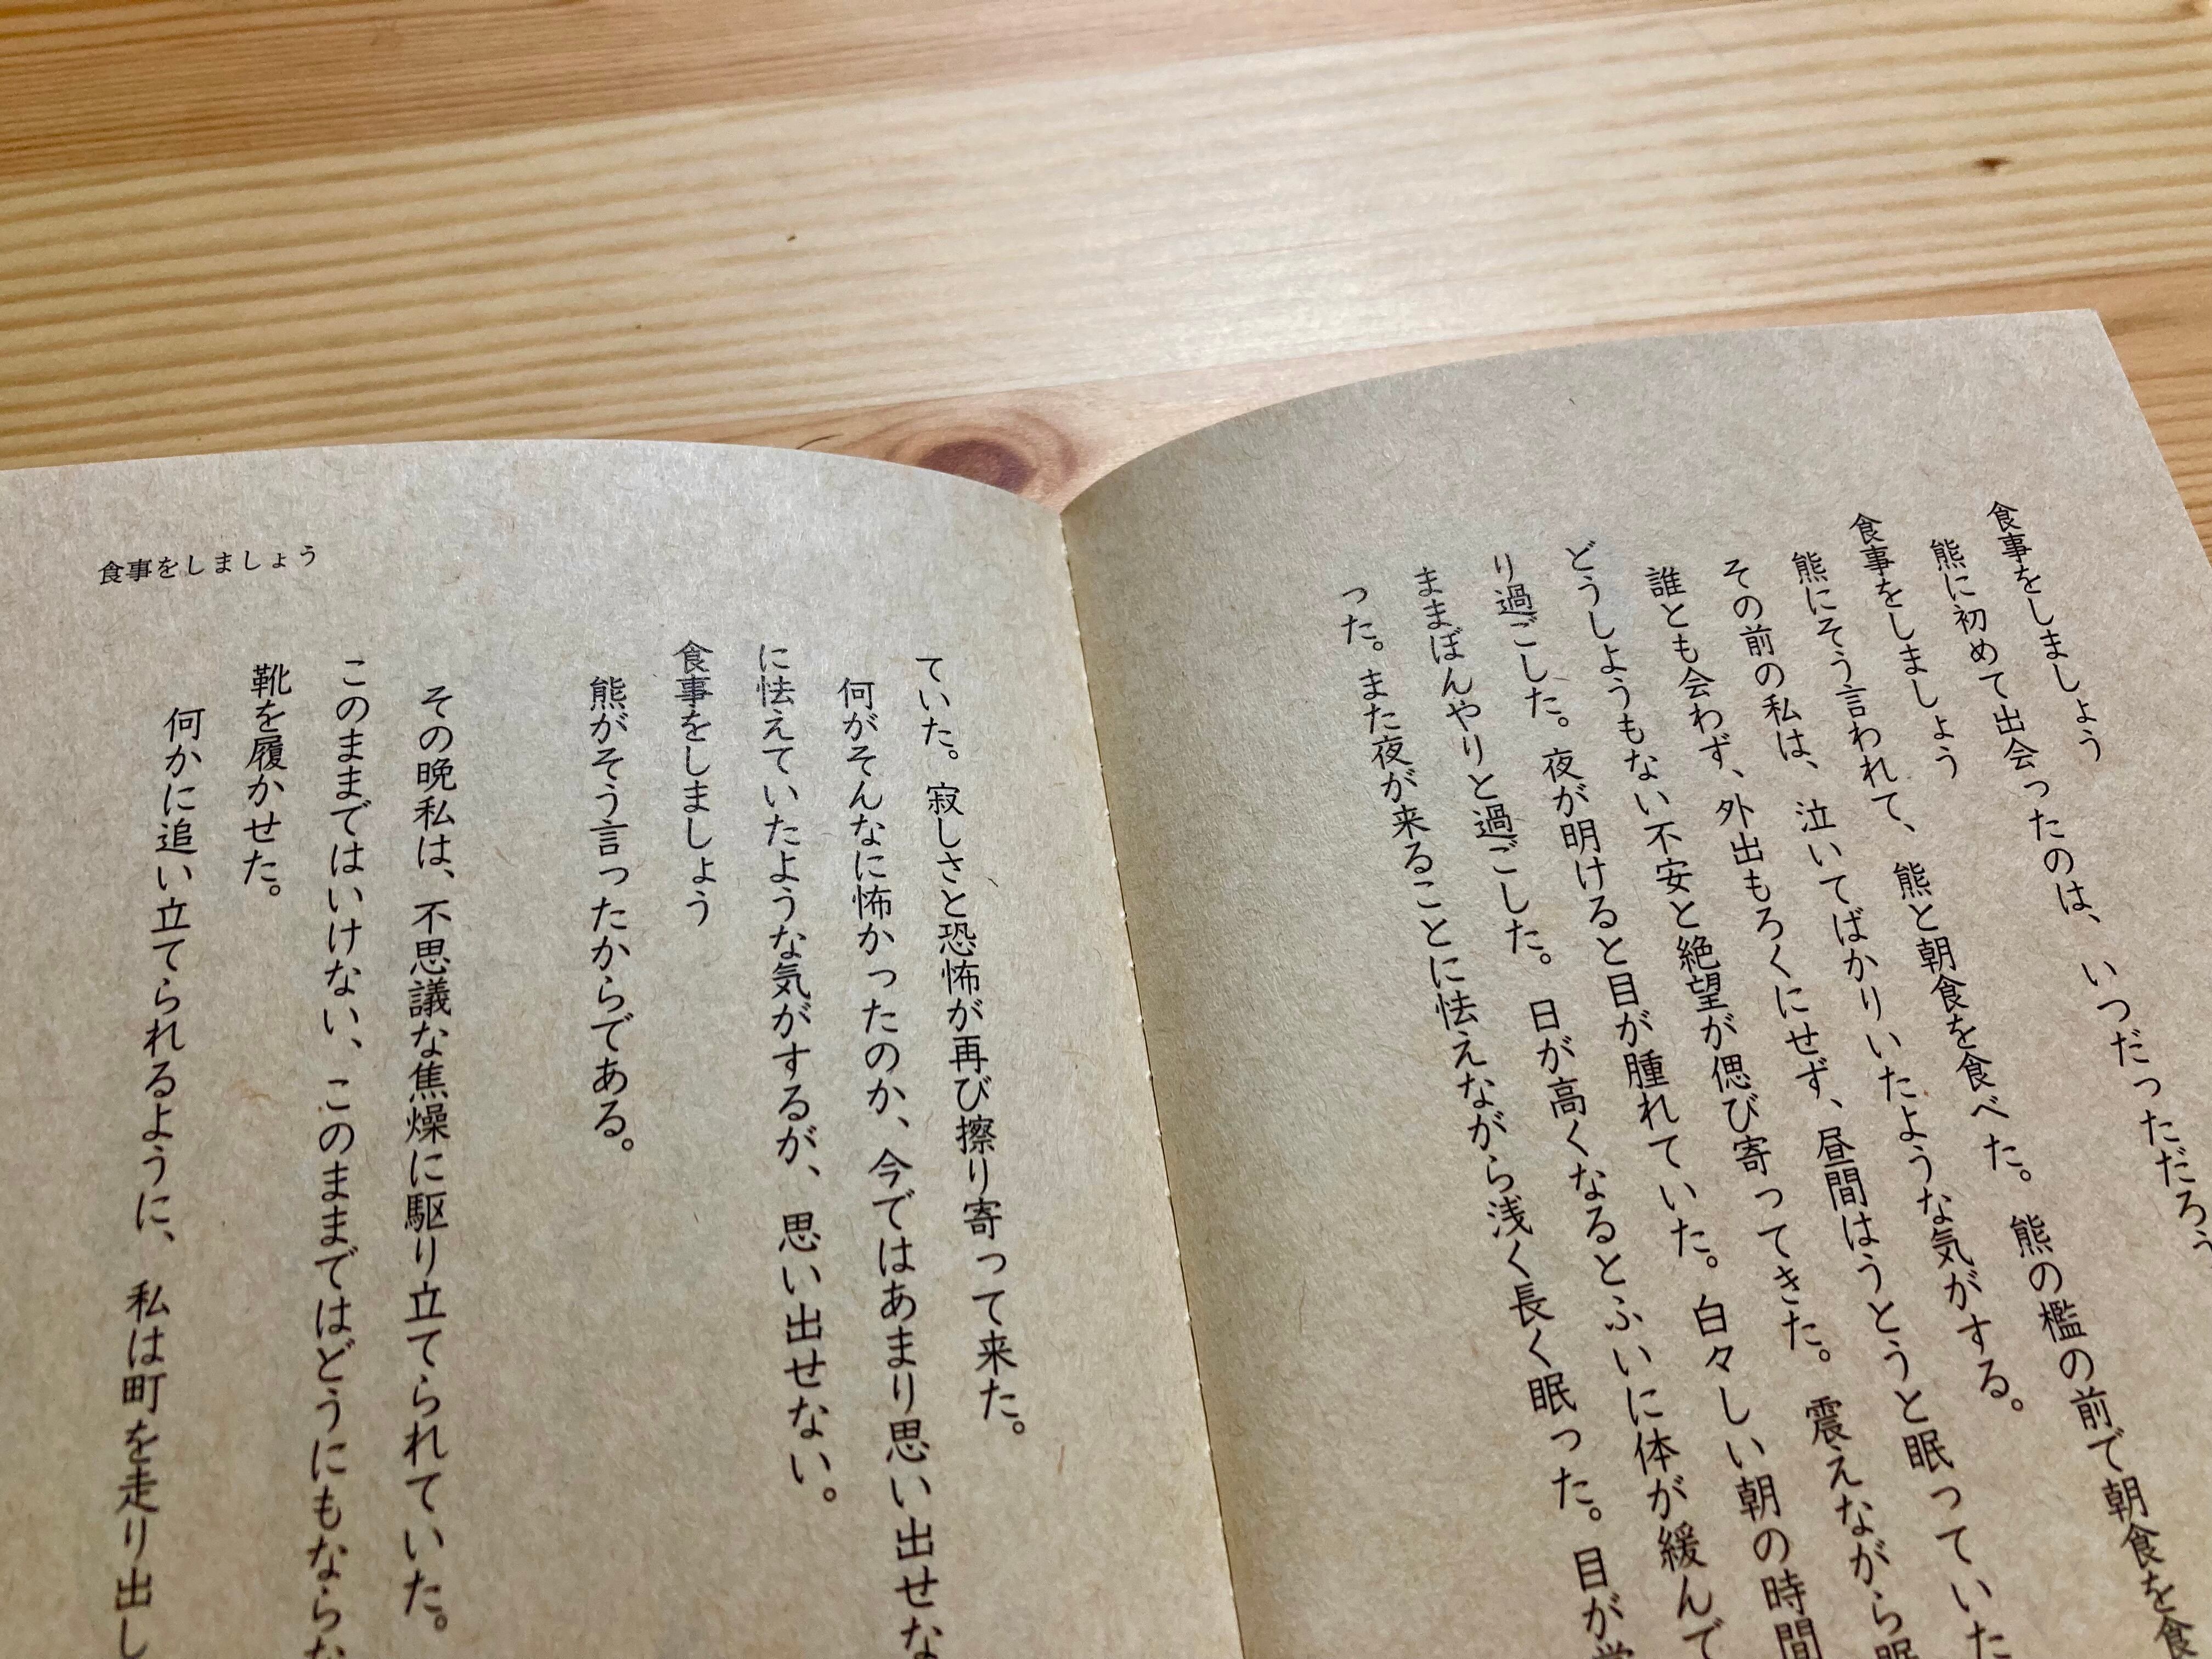 食事をしましょう
熊に初めて出会ったのは、いつだっただろう
食事をしましょう
熊にそう言われて、熊と朝食を食べた。熊の檻の前で朝食を食
その前の私は、泣いてばかりいたような気がする。
誰とも会わず、外出もろくにせず、昼間はうとうと眠っていた
どうしようもない不安と絶望が偲び寄ってきた。震えながら眠
り過ごした。夜が明けると目が腫れていた。白々しい朝の時間
ままぼんやりと過ごした。日が高くなるとふいに体が緩んで
った。また夜が来ることに怯えながら浅く長く眠った。目が
ていた。寂しさと恐怖が再び擦り寄って来た。
何がそんなに怖かったのか、今ではあまり思い出せな
に怯えていたような気がするが、思い出せない。
食事をしましょう
熊がそう言ったからである。
その晩私は、不思議な焦燥に駆り立てられていた。
このままではいけない、このままではどうにもならな
靴を履かせた。
何かに追い立てられるように、私は町を走り出し
食事をしましょう